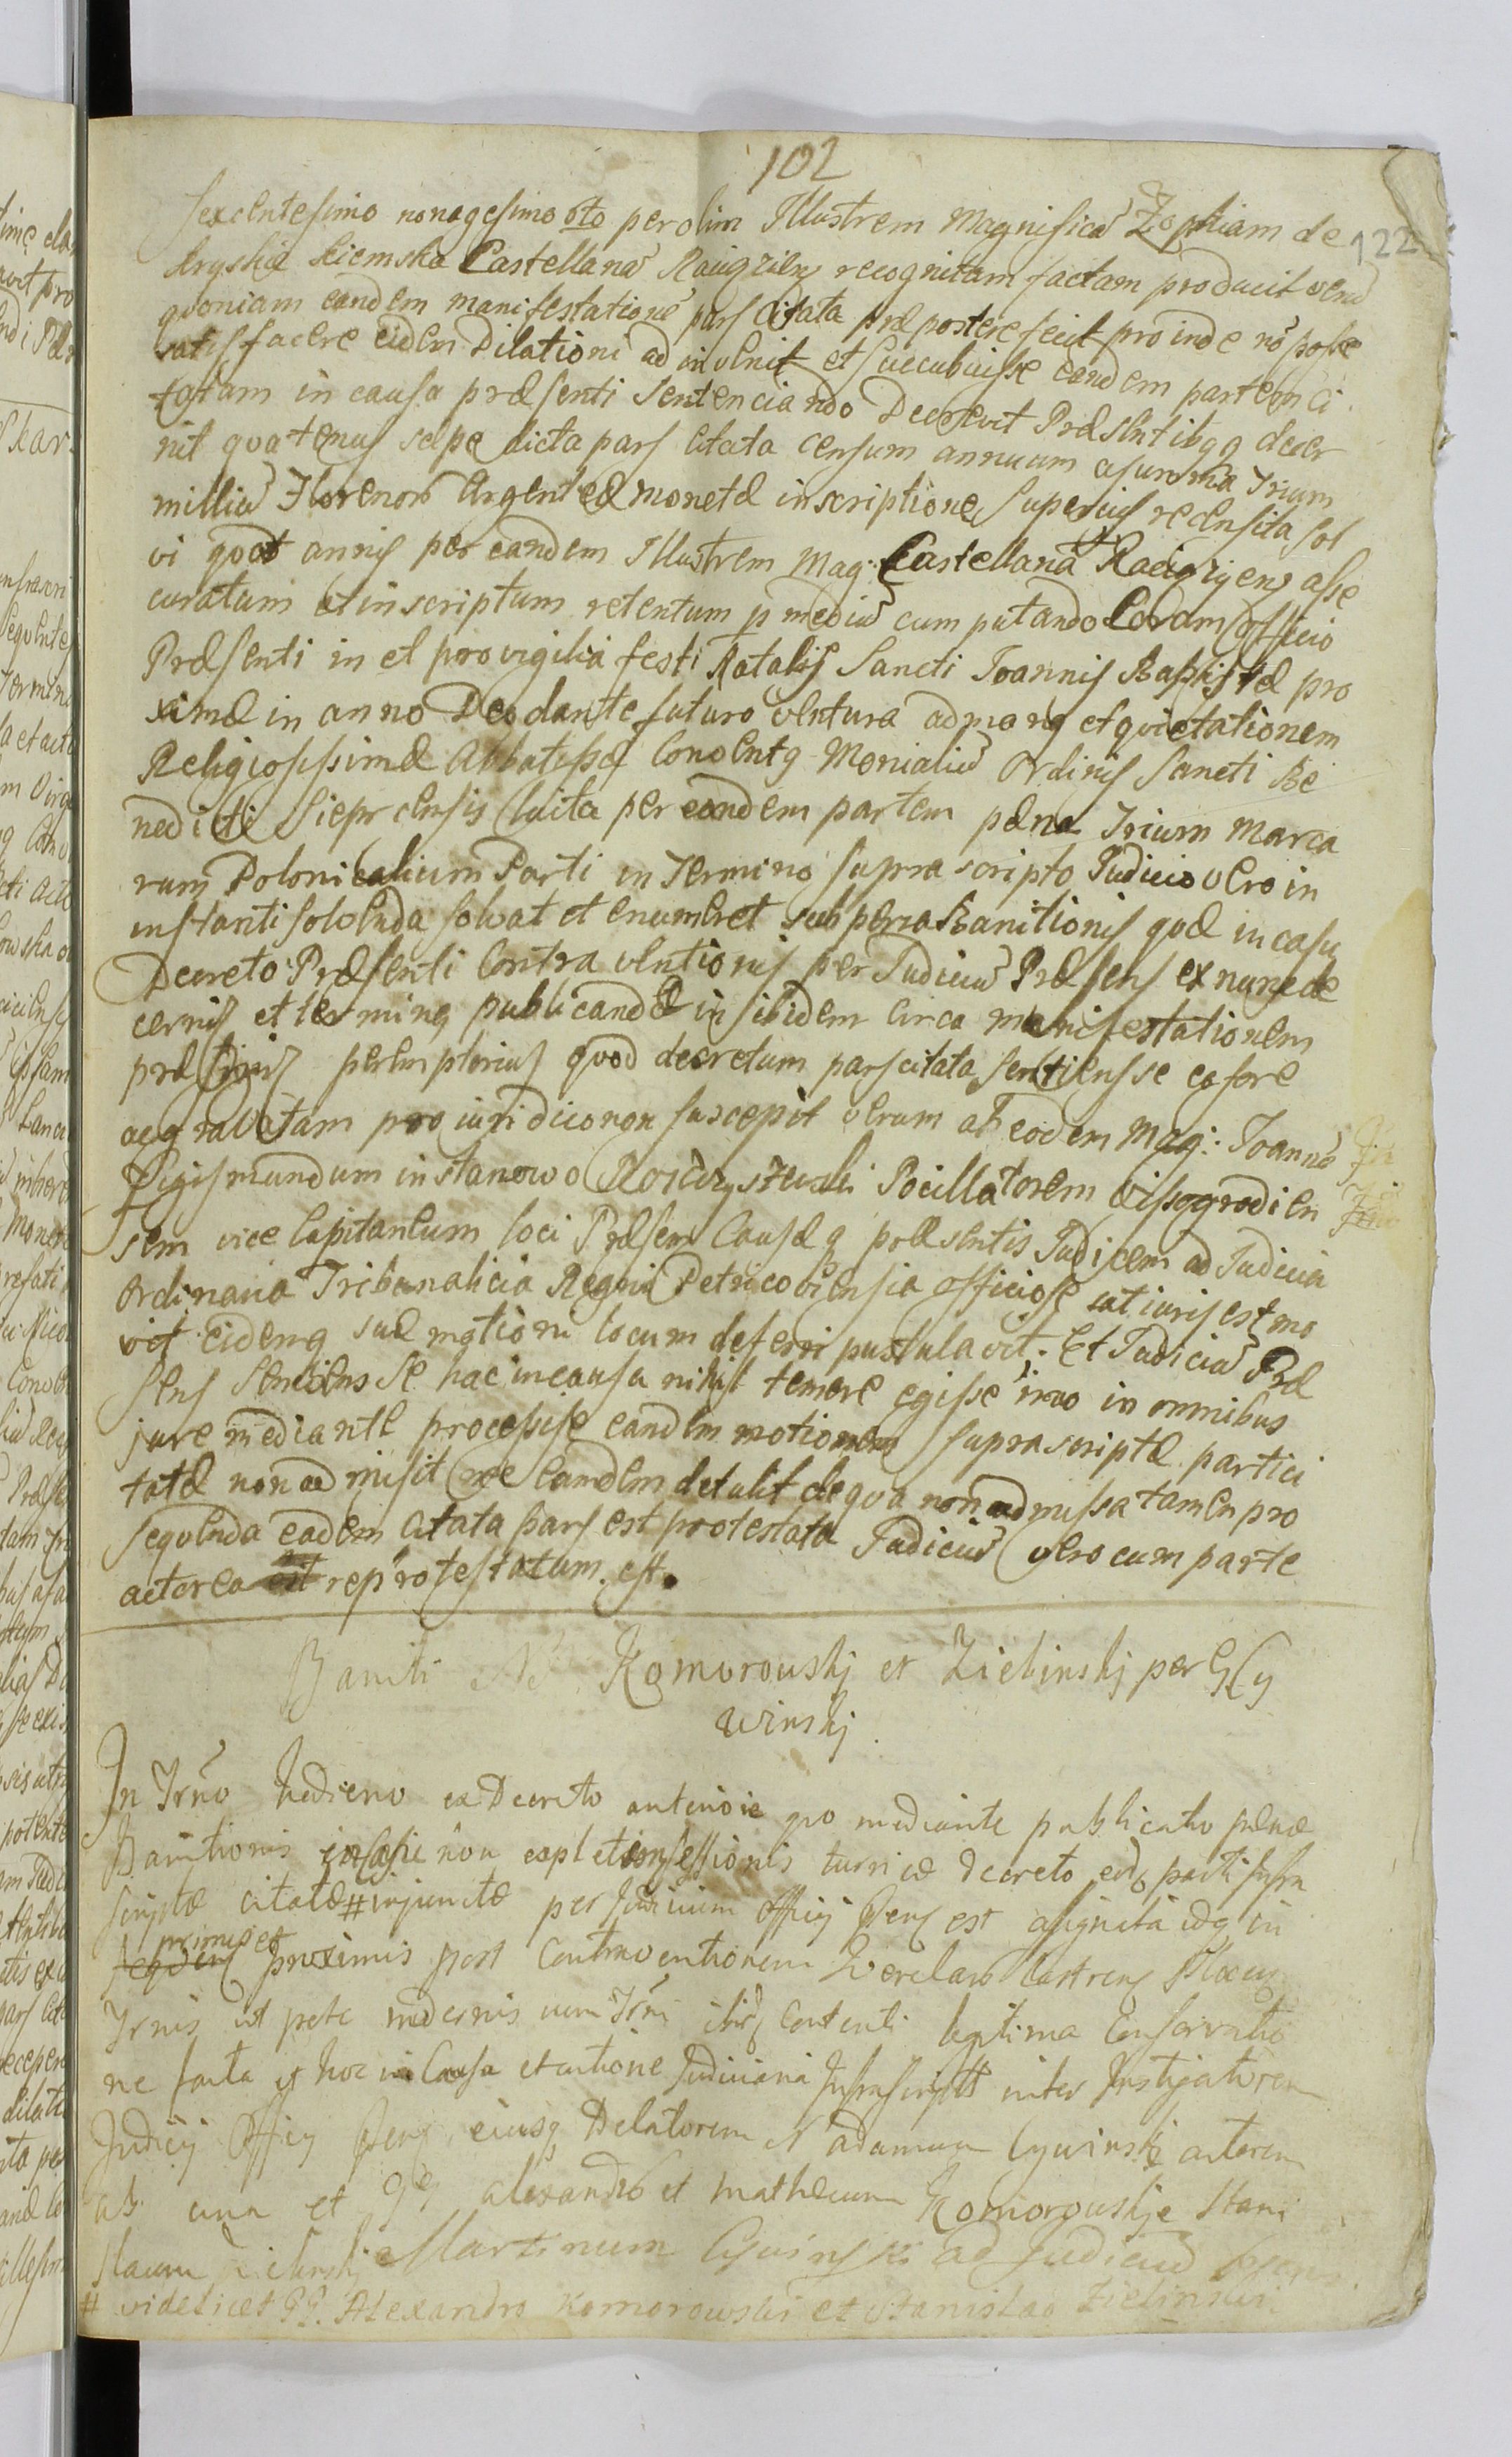 102
122
sexcentesimo nonagesimo 8to per olim Illustrem Magnificã Zophiam de
Kryskie Kiemska Castellanã Raigzięn recognitam factam producit verũ
quoniam eandem manifestationẽ pars Citata præpostere fecit proinde nõ posse
satisfacere eidem Dilationi ad invenit et succubuisse eandem partem Ci
tatam in causa præsenti Sentenciando Decrevit Præsentibqq decer
nit quatenus sæpe dicta pars Citata Censum annuum a summa Trium
milliũ Florenorũ Argenteæ monetæ inscriptione superius recensita sol
vi quot annis per eandem Illustrem Mag: Castellanã Raciązięn asse
curatum et inscriptum retentum p mediũ cumputando Coram Officio
Præsenti in et pro vigilia festi Natalis Sancti Joannis Baptistæ pro
ximæ in anno Deo dante futuro ventura ad mang et quietationem
Religiosissimæ Abbatissæ Conventg Monialiũ Ordinis Sancti Be
nedicti Sieprcensis luita per eandem partem pæna Trium Marca
rum Polonicalium Parti in Termino supra scripto Judicio vero in
instanti solvenda solvat et enumeret sub pæna Banitionis quæ in casu
Decreto Præsenti Contra ventionis per Judiciũ Præsens ex nunc de
cernis et terming publicandæ in ibidem Circa manifestationem
præ peremptorius quod decretum pars citata sentiens se eo fore
aggravatam pro iuridico non suscepit verum ab eodem Mag: Joannẽ
Sigismundum in Stanowo Rosciszewski Pocillatorem Vissogrodien
sem vice Capitaneum loci Præsen Causæq præsentis Judicem ad Judicia
Ordinaria Tribunalicia Regni Petricoviensia officiose uti iuris est mo
vit eidemq suæ motioni locum deferri pustulavit. Et Judiciũ Præ
sens Sentiens se hac in causa nihil temere egisse imo in omnibus
jure mediante processise eandem motionem suprascriptæ parti ci
tatæ non admisit nec eandem detulit de qua non admissa tamen pro
sequenda eadem Citata pars est protestata Judiciũ vero cum parte
actorea reprotestatum est.
Baniti Komorouskj et Zielinskj per G Cy
winskj.
In Trno hodierno ex Decreto anterioie quo mediante publicatio pænæ
Banitionis in casu non expletionis sessionis turri ex Decreto parti infra
scriptæ citatæ # injunctæ per Judicium Officij Præns est assignata idq in
primis et
proximis post Contraventionem Querelarũ Castrens Plocen
Trnis ut pote modernis cum Trni ibid Contenti legitima Conservatio
ne facta et hoc in Causa et actione Judiciaria Infrascripta inter Instigatorem
Judicij Officij Præns ejusq Delatorem N Adamum Cywinskj actorem
ab una et Alexandrũ et Mathæum Komorouskje Stani
slaum Zielinskj Martinum Cywinski ad Judiciũ
# videlicet GG. Alexandro Komorowski et Stanislao Zielinski